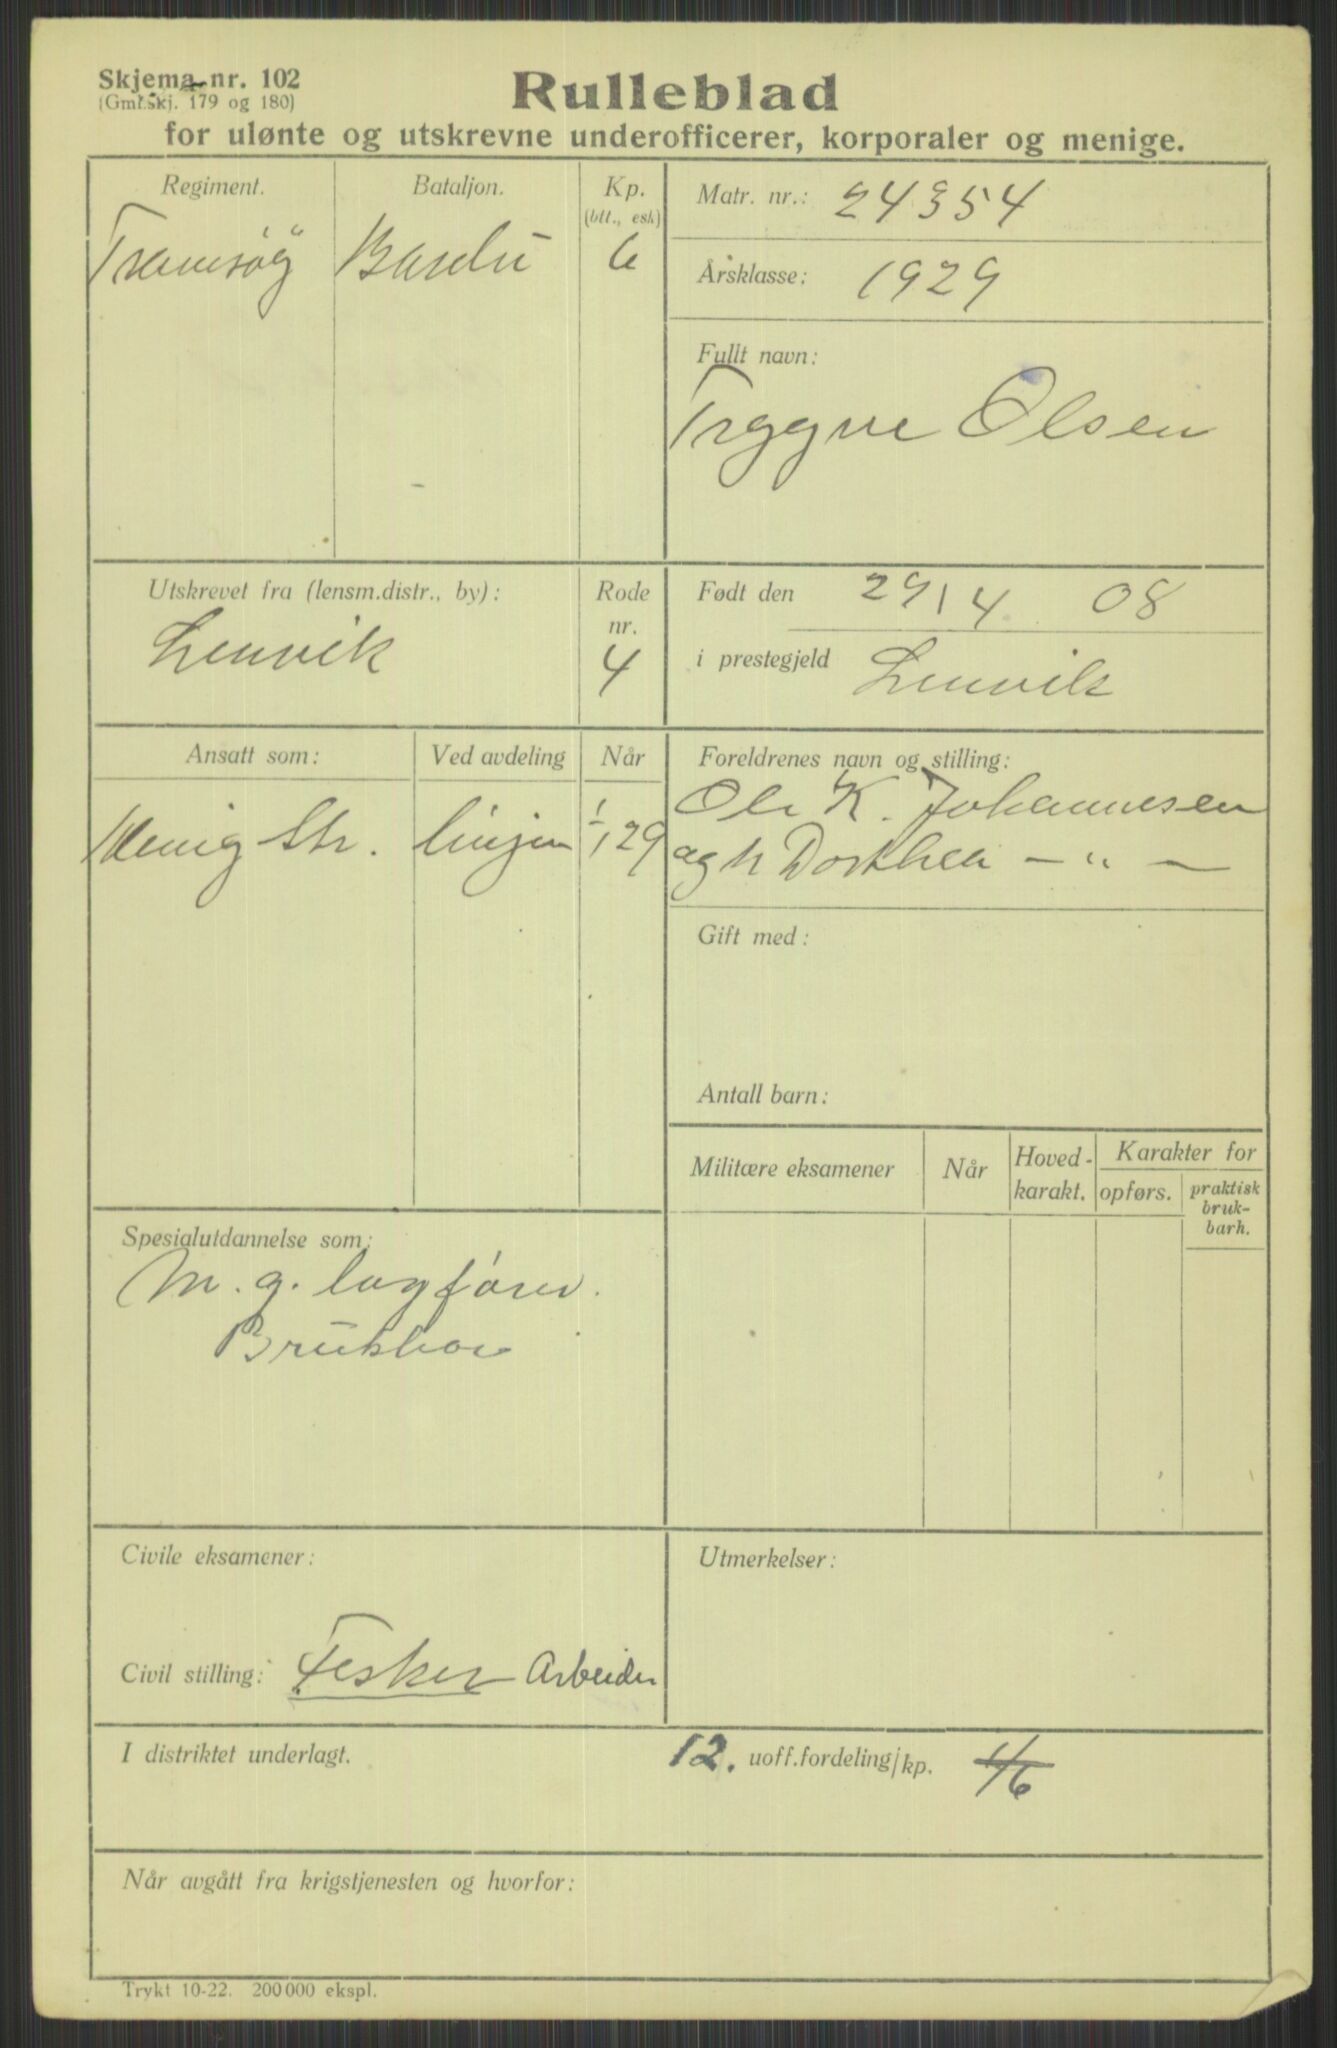 Skjema nr. 102
(Gml.skj. 179 og 180)
Rulleblad
for ulønte og utskrevne underofficerer, korporaler og menige.
Regiment. Bataljon. Kp.
(btt., esk)
Bardu 6
Matr. nr.: 24354
Årsklasse: 1929
Fullt navn:
Tryggve Olsen
Utskrevet fra (lensm.distr., by): Rode
nr.
Lenvik 4
Født den 29/4 08
i prestegjeld Lenvik
Ansatt som: Ved avdeling Når
Menig Str. linjen 1/1 29
Foreldrenes navn og stilling:
Ole K. Johannesen
og h Dorthea — „ —
Gift med:
Antall barn:
Militære eksamener Når Hoved-
karakt. Karakter for
opførs. praktisk
bruk-
barh.
Spesialutdannelse som:
M. g. lagfører.
Brukbar
Civile eksamener:
Civil stilling: Fisker Arbeider
Utmerkelser:
I distriktet underlagt. 12. uoff.fordeling/kp.
Når avgått fra krigstjenesten og hvorfor:
Trykt 10-22. 200 000 ekspl.